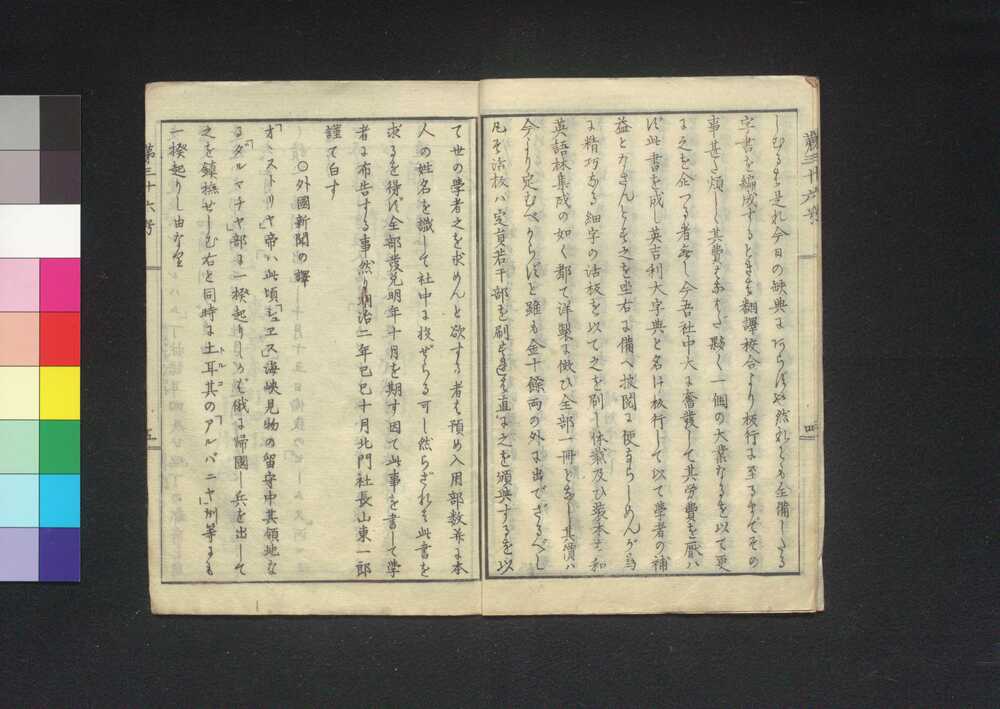 しむるもの是れ今日の缺典にあらずや然れども全備したる
字書を編成するときは翻譯校合より板行に至るまでその
事甚だ煩しく其費も亦また夥く一個の大業なるを以て更
に之を企つる者無し今吾社中大に奮發して其労費を厭は
ず此書を成し英吉利大字典と名け板行して以て學者の補
益となさんとす之を坐右に備へ披閲に便ならしめんが為
に精巧なる細字の活板を以て之を刷し体裁及び製本は和
英語林集成の如く都て洋製に倣ひ全部一冊となし其價ハ
今より定むべからずと雖も金十餘両の外に出でざるべし
凡そ活板ハ定員若干部を刷し直に之を頒與するを以
第三十六号
四
て世の學者之を求めんと欲する者は預め入用部数并に本
人の姓名を識して社中に投ぜらる可し然らざれば此書を
求るを得ず全部發兌明年十月を期す因て此事を書して学
者に布告する事然り明治二年己巳十月北門社長山東一郎
謹て白す
○外國新聞の譯
「オヽストリヤ」帝ハ此頃「ヱス」海峽見物の留守中其領地な
る「ダルマチヤ」部に一揆起りしかば俄に帰國し兵を出して
之を鎮撫せしむ右と同時に土耳其の「アルバニヤ」州等にも
トルコ
一揆起りし由なり
第三十六号
五